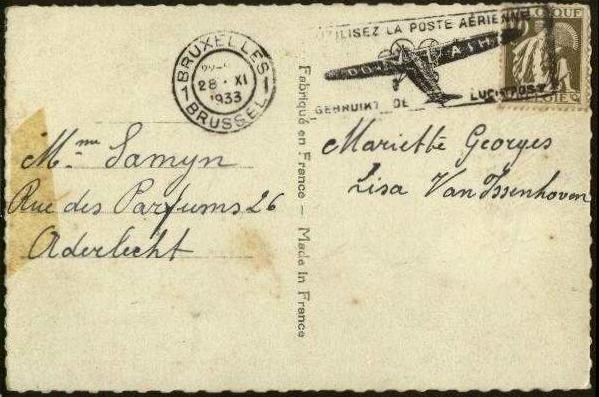 BRUXELLES
1 1
28 · XI
1933
BRUSSEL
UTILISEZ LA POSTE AÉRIENNE
GEBRUIKT DE LUCHTPOST
BELGIQUE
BELGIE
Mme Samyn
Rue des Parfums 26
Aderlecht
Fabriqué en France – Made in France
Mariette Georges
Lisa Van Issenhoven